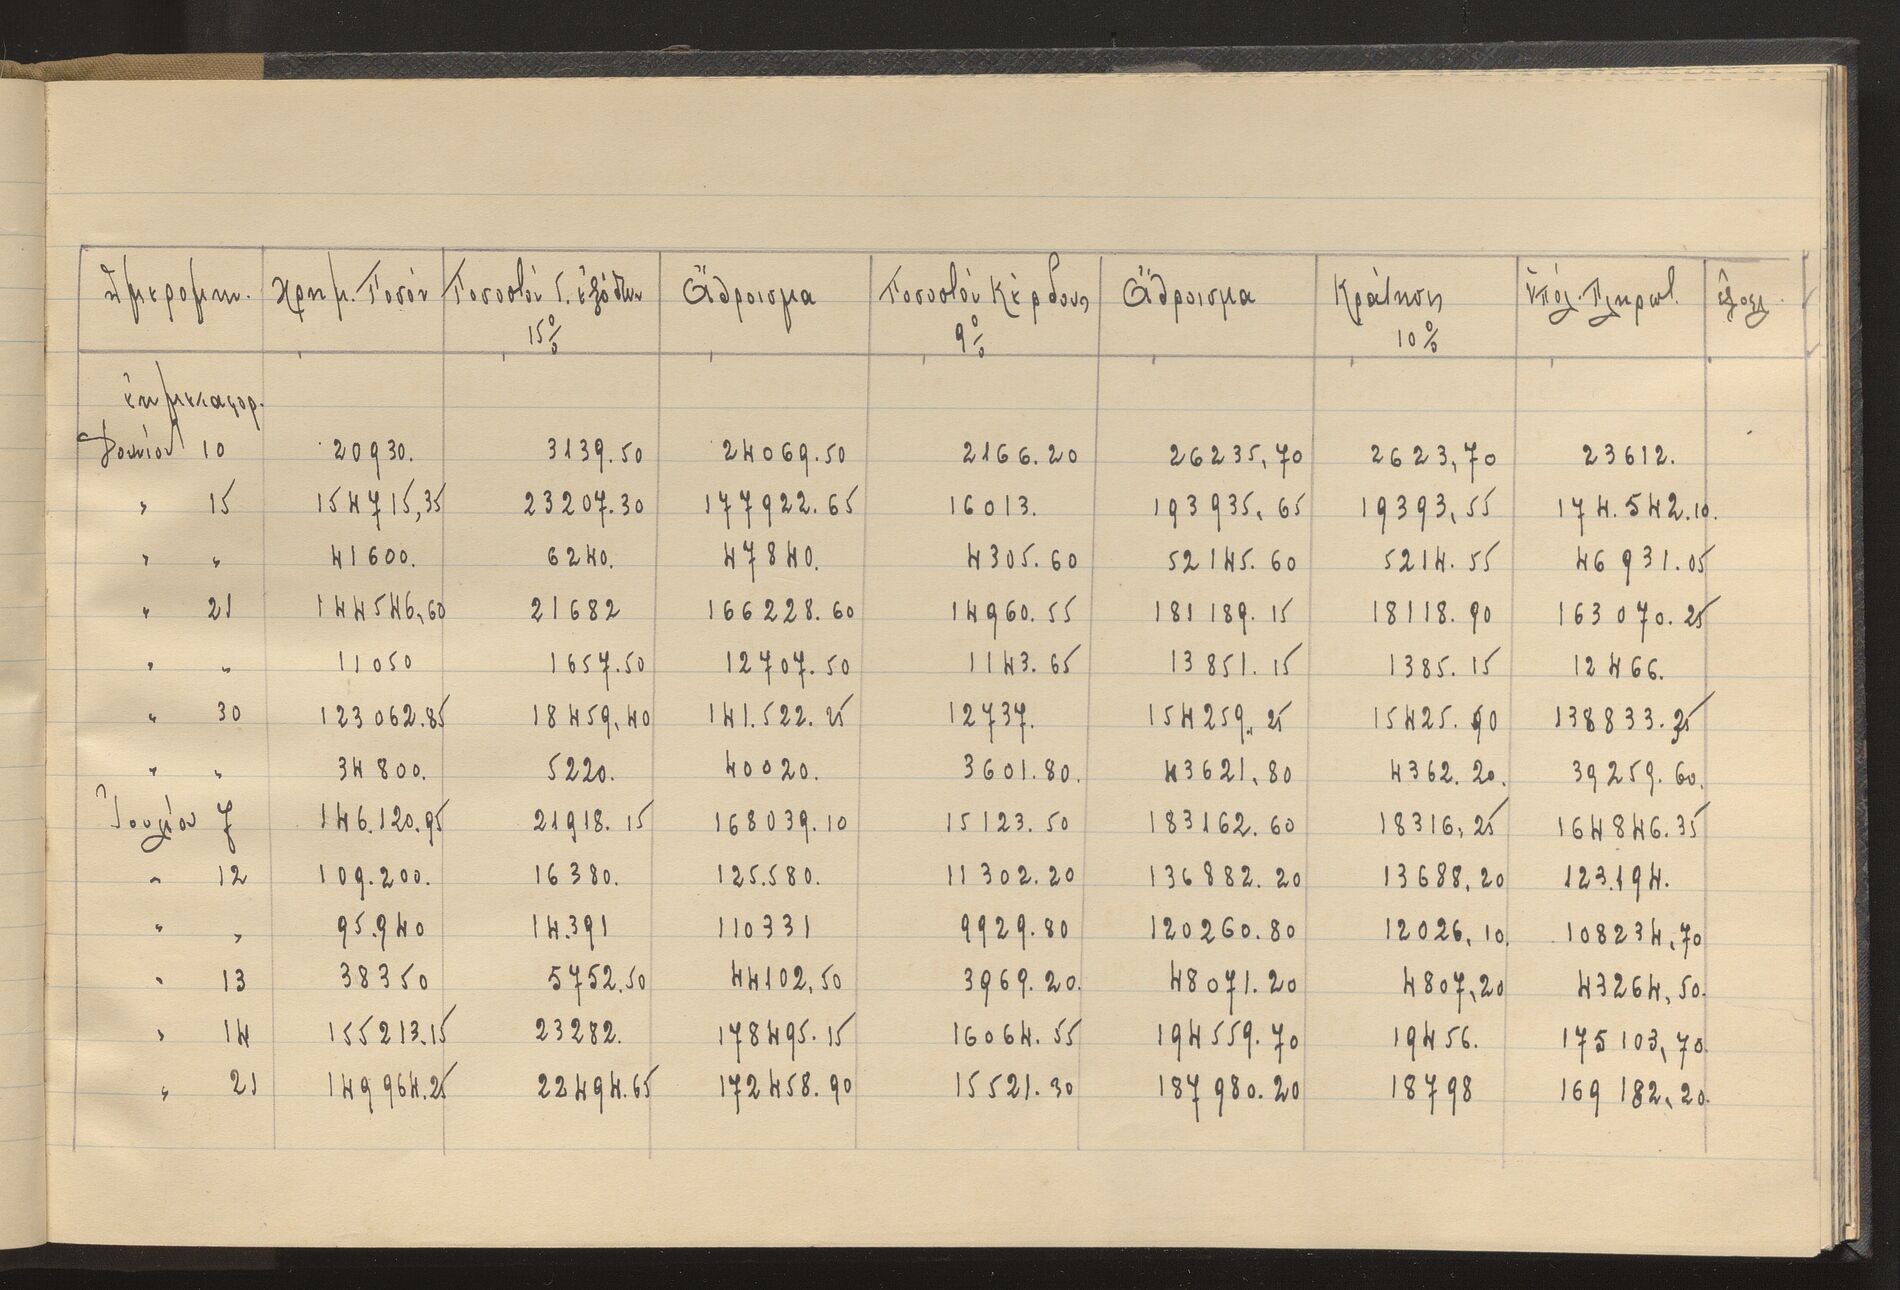 Ἡμερομην. Χρημ. Ποσόν Ποσοστόν Γ. ἐξόδων Ἄθροισμα Ποσοστόν Κέρδους Ἄθροισμα Κράτησις Ὑπόλ. Πληρωτ.
15% 9% 10%
ἐκ μεταφορ.
Ἰουνίου 10 20930. 3139.50 24069.50 2166.20 26235,70 2623,70 23612.
" 15 154715,35 23207.30 177922.65 16013. 193935,65 19393,55 174.542.10.
" " 41600. 6240. 47840. 4305.60 52145.60 5214.55 46931.05
" 21 144546,60 21682 166228.60 14960.55 181189.15 18118.90 163070.25
" " 11050 1657.50 12707.50 1143.65 13851.15 1385.15 12466.
" 30 123062.85 18459,40 141.522.25 12737. 154259,25 15425.90 138833.35
" " 34800. 5220. 40020. 3601.80. 43621,80 4362.20. 39259.60.
Ἰουλίου 7 146.120.95 21918.15 168039.10 15123.50 183162.60 18316,25 164846.35
" 12 109.200. 16380. 125.580. 11302.20 136882.20 13688,20 123.194.
" " 95.940 14.391 110331 9929.80 120260.80 12026,10. 108234,70
" 13 38350 5752.50 44102,50 3969.20. 48071.20 4807,20 43264,50.
" 14 155213.15 23282. 178495.15 16064.55 194559.70 19456. 175103,70.
" 21 149964.25 22494.65 172458.90 15521.30 187980.20 18798 169182,20.